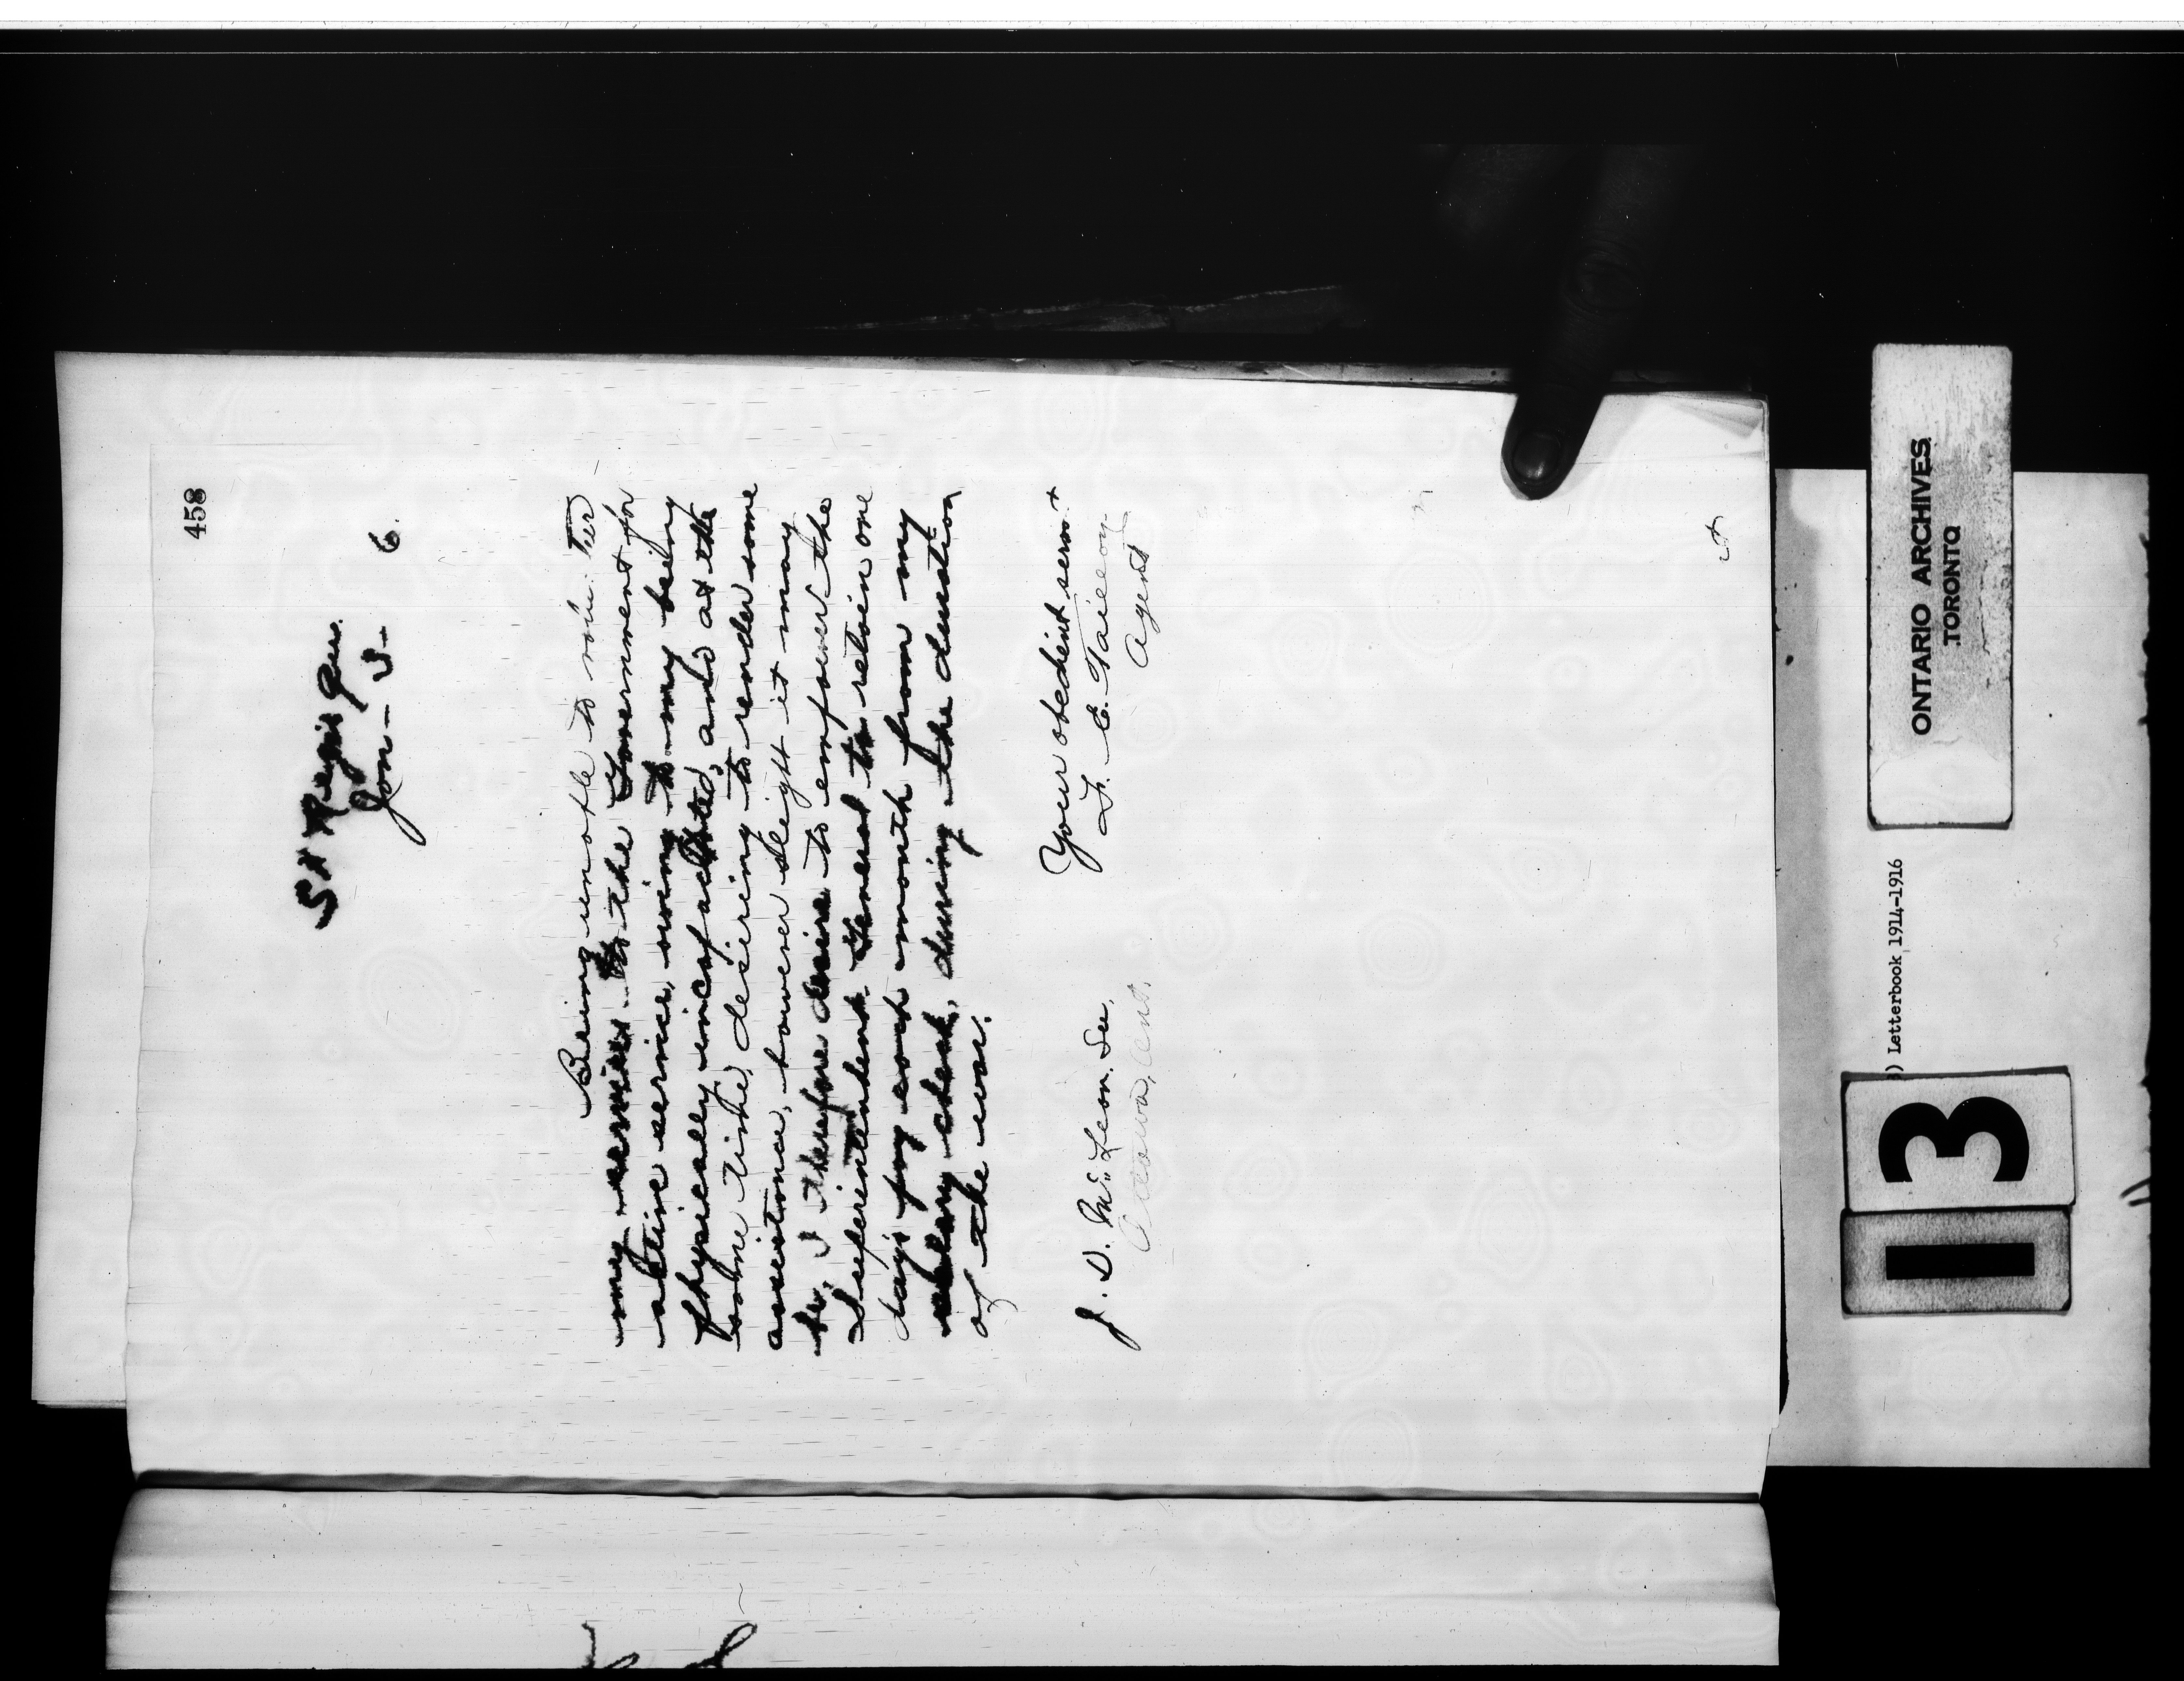 458
St Regis Que.
Jan - 5 - 6.
Being unable to volunteer
my services to the Government for
active service, owing to my being
physically incapacitated, and at the
same time, desiring to render some
assistance, however slight it may
be, I therefore desire to empower the
Superintendent General to retain one
day's pay each month from my
salary cheak, during the duration
of the war.
Your obedient servt
F. E. Taillon
Agent
J. D. McLean. Sec,
Ottawa, Ont.
ONTARIO ARCHIVES
TORONTO
) Letterbook 1914-1916
13